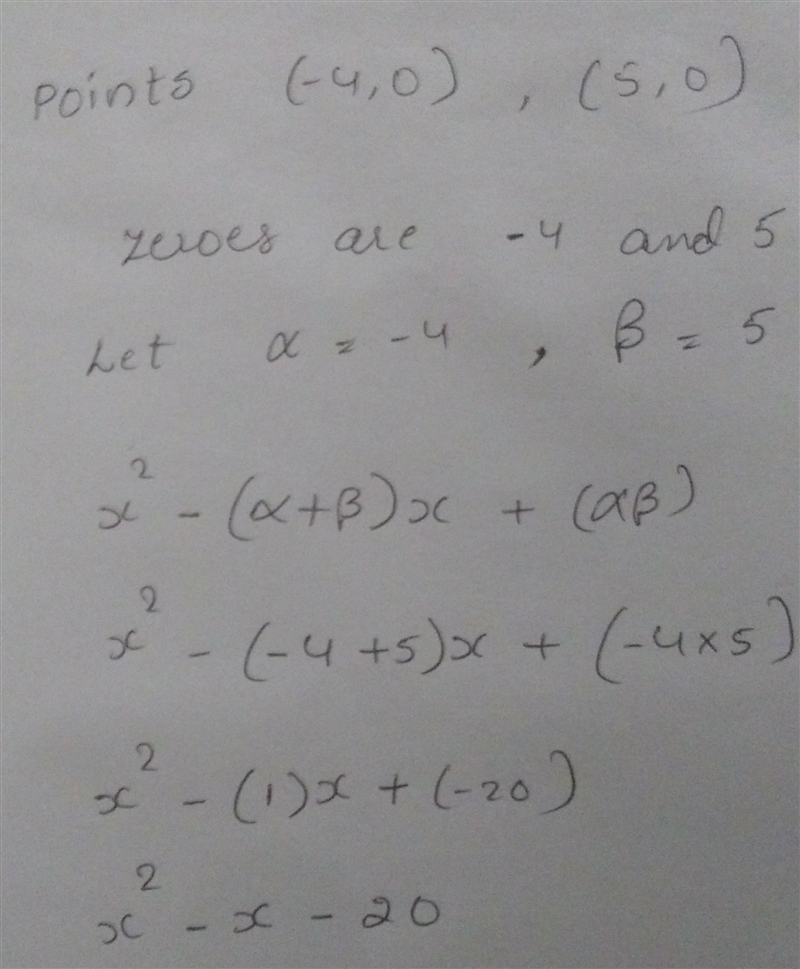 Points (-4,0) , (5,0)
zeroes are -4 and 5
Let α = -4 , β = 5
x² - (α+β)x + (αβ)
x² - (-4+5)x + (-4×5)
x² - (1)x + (-20)
x² - x - 20